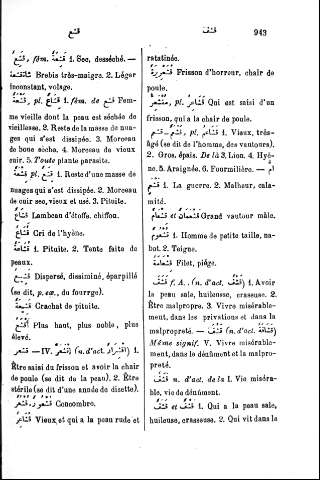 قشع
قشف
943
قَشِعٌ, fém. قَشِعَةٌ 1. Sec, desséché. —
Brebis très-maigre. 2. Léger
inconstant, volage.
قَشْعَةٌ, pl. قِشَعٌ 1. fém. de قَشْعٌ Fem-
me vieille dont la peau est séchée de
vieillesse. 2. Reste de la masse de nua-
ges qui s'est dissipée. 3. Morceau
de boue sèche. 4. Morceau de vieux
cuir. 5. Toute plante parasite.
pl. 1. Reste d'une masse de
nuages qui s'est dissipée. 2. Morceau
de cuir sec, vieux et usé. 3. Pituite.
Lambeau d'étoffe, chiffon.
Cri de l'hyène.
1. Pituite. 2. Tente faite de
peaux.
Dispersé, disséminé, éparpillé
(se dit, p. ex., du fourrge).
Crachat de pituite.
Plus haut, plus noble, plus
élevé.
قشعر — IV. (n. d'act.) 1.
Être saisi du frisson et avoir la chair
de poule (se dit de la peau). 2. Être
stérile (se dit d'une année de disette).
Concombre.
Vieux et qui a la peau rude et
ratatinée.
قُشَعْرِيرَةٌ Frisson d'horreur, chair de
poule.
مُقْشَعِرٌّ, pl. Qui est saisi d'un
frisson, qui a la chair de poule.
قشعم — pl. 1. Vieux, très-
âgé (se dit de l'homme, des vautours).
2. Gros, épais. De là 3. Lion. 4. Hyè-
ne. 5. Araignée. 6. Fourmilière. — أم
1. La guerre. 2. Malheur, cala-
mité.
et Grand vautour mâle.
1. Homme de petite taille, na-
bot. 2. Teigne.
Filet, piége.
قشف f. A. (n. d'act. قَشَفٌ) 1. Avoir
la peau sale, huileuse, crasseuse. 2.
Être malpropre. 3. Vivre misérable-
ment, dans les privations et dans la
malpropreté. — قشف (n. d'act. قَشَافَةٌ)
Même signif. V. Vivre misérable-
ment, dans le dénûment et la malpro-
preté.
قَشَفٌ n. d'act. de la I. Vie miséra-
ble, vie de dénûment.
قَشِفٌ et قَشْفٌ 1. Qui a la peau sale,
huileuse, crasseuse. 2. Qui vit dans le